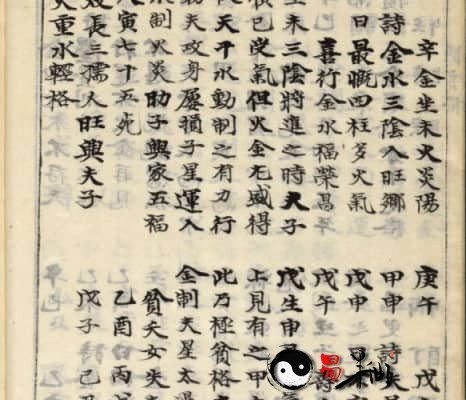 辛金坐未火炎陽
詩金水三陰入旺鄉
日最嘅四柱多火氣
喜行金水福榮昌
生未三陰將進之時夫子
已受氣但火金尤盛得
天干水動制之有力行
夫攻身屢損子星運入
水制火炎助子興家五福
寅七十五死
長三孺人旺興夫子
火重水輕格
庚午 戊
甲申 詩夫
戊申 日
戊午
戊生申
上見有之甲
此乃極貧格
金制夫星太
貧夭女失
乙酉 日丙
戊子 己
易